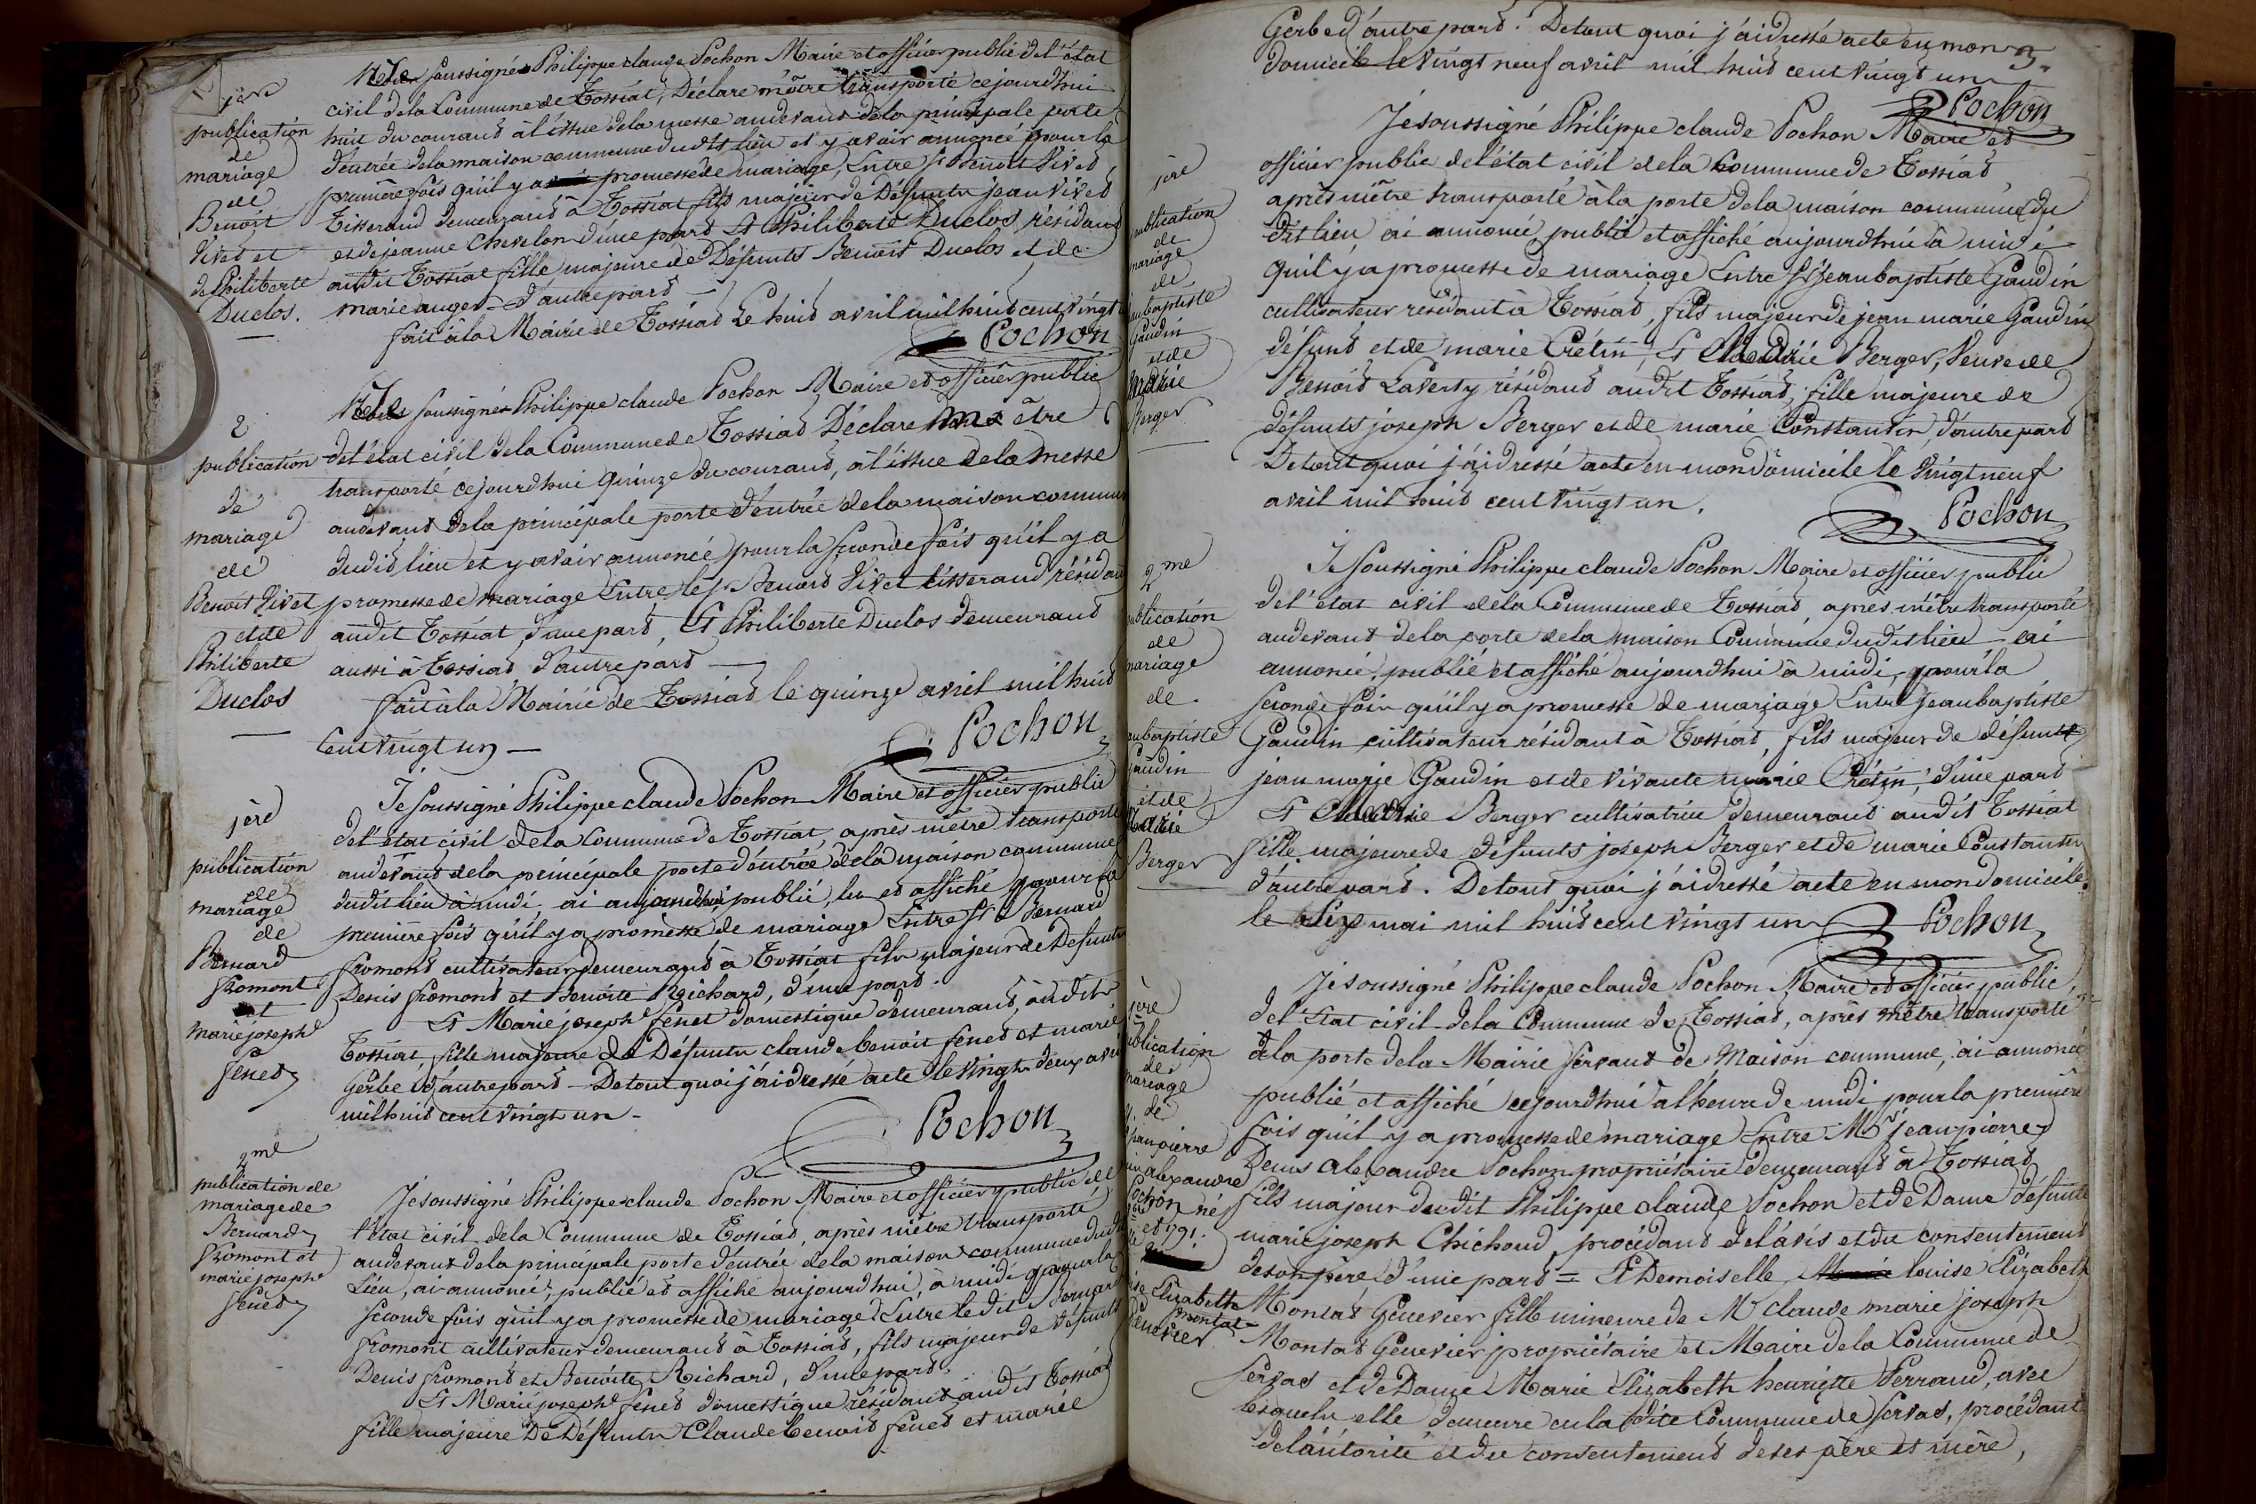 1ère
publication
de
mariage
de
Benoit
Vivet et
de Philiberte
Duclos.
Je soussigné Philippe claude Pochon Maire et officier public de l'état
civil de la Commune de Tossiat, Déclare m'être transporté cejourdhui
huit du courant à l'issue de la messe audevant de la principale porte
d'entrée de la maison commune dudit lieu et y avoir annoncé pour la
première fois qu'il y a promesse de mariage, Entre Sr Benoit Vivet
Tisserand demeurant à Tossiat fils majeur de Défunts jean vivet
et de jeanne Chevelon d'une part Et Philiberte Duclos résidant
audit Tossiat fille majeure de Défunts Benoit Duclos et de
marie auger d'autre part
fait à la Mairie de Tossiat Le huit avril mil huit cent vingt
Pochon
2
publication
de
mariage
de
Benoit Vivet
et de
Philiberte
Duclos
Je soussigné Philippe claude Pochon Maire et officier public
de l'état civil de la Commune de Tossiat Déclare m'être
transporté cejourdhui quinze du courant, à l'issue de la messe
audevant de la principale porte d'entrée de la maison commune
dudit lieu et y avoir annoncé pour la seconde fois qu'il y a
promesse de mariage Entre les Benoit Vivet tisserand résidant
audit Tossiat, d'une part, Et Philiberte Duclos demeurant
aussi à Tossiat d'autre part
fait à la Mairie de Tossiat le quinze avril mil huit
Cent vingt un
Pochon
1ère
publication
de
mariage
de
Bernard
fromont
et
marie josephe
fenet
Je soussigné Philippe claude Pochon Maire et officier public
de l'état civil de la Commune de Tossiat, après m'être transporté
audevant de la principale porte d'entrée de la maison commune
dudit lieu à midi ai aujourdhui publié, lu et affiché pour la
première fois qu'il y a promesse de mariage Entre Sr Bernard
fromont cultivateur demeurant à Tossiat fils majeur de Défunts
Denis fromont et Benoite Richard, d'une part.
Et Marie josephe fenet domestique demeurant, audit
Tossiat fille majeure de Défunts claude benoit fenet et marie
Gerbe d'autre part De tout quoi j'ai dressé acte le vingt deux avril
mil huit cent vingt un
Pochon
2me
publication de
mariage de
Bernard
fromont et
marie josephe
fenet
Je soussigné Philippe claude Pochon Maire et officier public de
l'état civil de la Commune de Tossiat, après m'être transporté
audevant de la principale porte d'entrée de la maison commune dudit
Lieu, ai annoncé, publié et affiché aujourdhui à midi pour la
seconde fois qu'il y a promesse de mariage Entre ledit Bernard
fromont cultivateur demeurant à Tossiat, fils majeur de défunts
Denis fromont et Benoite Richard, d'une part.
Et Marie josephe fenet domestique résidant audit Tossiat
fille majeure De Défunts Claude benoit fenet et marie
Gerbe d'autre part. De tout quoi j'ai dressé acte en mon
domicile le vingt neuf avril mil huit cent vingt un
3.
Pochon
1ère
publication
de
mariage
de
jean baptiste
Gaudin
et de
Marie
Berger
Je soussigné Philippe claude Pochon Maire et
officier public de l'état civil de la Commune de Tossiat,
après m'être transporté à la porte de la maison commune du
dit lieu, ai annoncé, publié et affiché aujourdhui à midi
qu'il y a promesse de mariage Entre Sr jean baptiste Gaudin
cultivateur résidant à Tossiat, fils majeur de jean marie Gaudin
défunt et de marie Crétin, Et Marie Berger, Veuve de
Benoit Laverty résidant audit Tossiat, fille majeure de
défunts joseph Berger et de marie Constantin, d'autre part
De tout quoi j'ai dressé acte en mon domicile le vingt neuf
avril mil huit cent vingt un.
Pochon
2me
publication
de
mariage
de
jean baptiste
Gaudin
et de
Marie
Berger
Je soussigné Philippe claude Pochon Maire et officier public
de l'état civil de la Commune de Tossiat, après m'être transporté
audevant de la porte de la maison Commune dudit lieu ai
annoncé, publié et affiché aujourdhui à midi, pour la
seconde fois qu'il y a promesse de mariage Entre Jean baptiste
Gaudin cultivateur résidant à Tossiat, fils majeur de défunt
jean marie Gaudin et de vivante marie Crétin, d'une part
Et Marie Berger cultivatrice demeurant audit Tossiat
fille majeure de défunts joseph Berger et de marie Constantin
d'autre part. De tout quoi j'ai dressé acte en mon domicile
le six mai mil huit cent vingt un
Pochon
1ère
publication
de
mariage
de
jean pierre
alexandre
Pochon né
1791.
Elizabeth
montat
Genevier
Je soussigné Philippe claude Pochon Maire et officier public
de l'Etat civil de la Commune de Tossiat, après m'être transporté
à la porte de la Mairie servant de Maison commune, ai annoncé
publié et affiché cejourdhui à l'heure de midi pour la première
fois qu'il y a promesse de mariage Entre Mr jean pierre
Denis alexandre Pochon propriétaire demeurant à Tossiat
fils majeur dudit Philippe claude Pochon et de Dame défunte
marie joseph Chichoud, procédant de l'avis et du consentement
de son père d'une part = Et Demoiselle louise Elizabeth
Montat Genevier fille mineure de Mr claude marie joseph
Montat Genevier propriétaire et Maire de la Commune de
Servas et de Dame Marie Elizabeth henriette Perraud, avec
lesquels elle demeure en la dite Commune de Servas, procédant
de l'autorité et du consentement de ses père et mère,